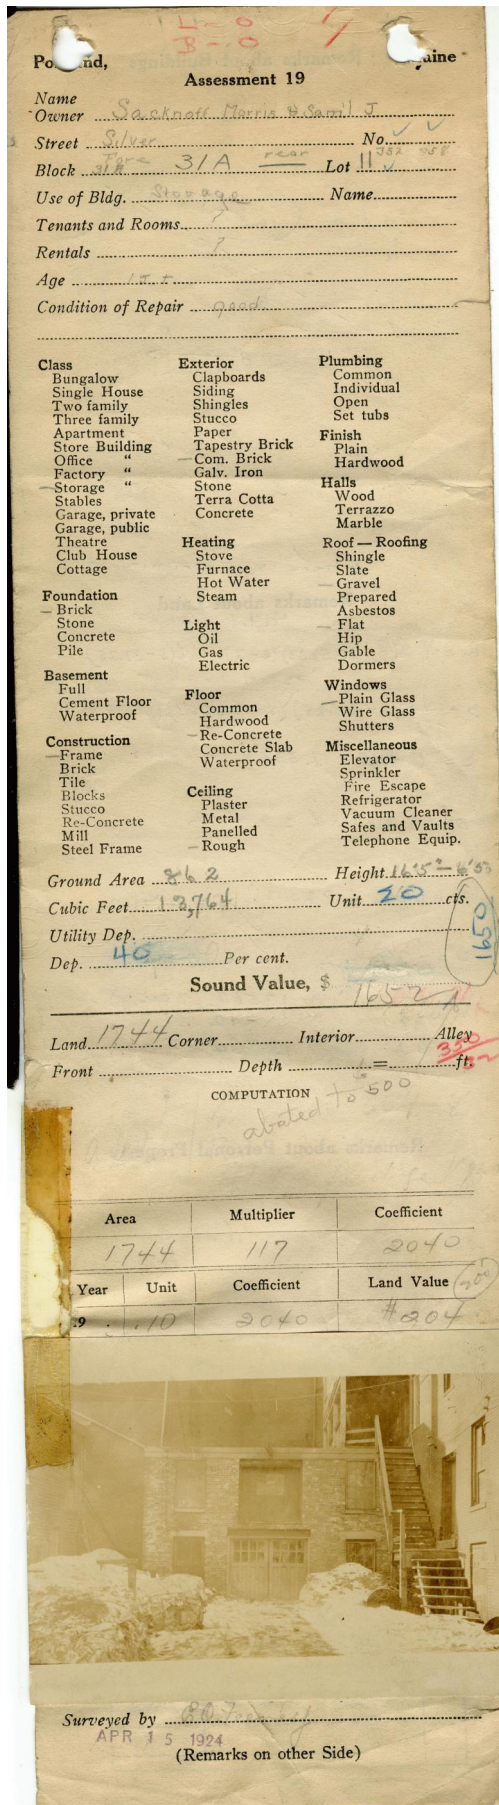 L-0
B-0
Po nd, aine
Assessment 19
Name
Owner Sacknoff Morris & Saml J
Street Silver No.
Fore 352 358
Block 31A 31A rear Lot 11
Use of Bldg. Storage Name
Tenants and Rooms
Rentals
Age 15 ±
Condition of Repair good
Class
Bungalow
Single House
Two family
Three family
Apartment
Store Building
Office "
Factory "
Storage "
Stables
Garage, private
Garage, public
Theatre
Club House
Cottage
Foundation
Brick
Stone
Concrete
Pile
Basement
Full
Cement Floor
Waterproof
Construction
Frame
Brick
Tile
Blocks
Stucco
Re-Concrete
Mill
Steel Frame
Exterior
Clapboards
Siding
Shingles
Stucco
Paper
Tapestry Brick
Com. Brick
Galv. Iron
Stone
Terra Cotta
Concrete
Heating
Stove
Furnace
Hot Water
Steam
Light
Oil
Gas
Electric
Floor
Common
Hardwood
Re-Concrete
Concrete Slab
Waterproof
Ceiling
Plaster
Metal
Panelled
Rough
Plumbing
Common
Individual
Open
Set tubs
Finish
Plain
Hardwood
Halls
Wood
Terrazzo
Marble
Roof — Roofing
Shingle
Slate
Gravel
Prepared
Asbestos
Flat
Hip
Gable
Dormers
Windows
Plain Glass
Wire Glass
Shutters
Miscellaneous
Elevator
Sprinkler
Fire Escape
Refrigerator
Vacuum Cleaner
Safes and Vaults
Telephone Equip.
Ground Area 862 Height
Cubic Feet 13,764 Unit 20 cts.
Utility Dep.
1650
Dep. 40 Per cent.
Sound Value, $ 1652
Land 1744 Corner Interior Alley
350
Front Depth = ft.
COMPUTATION
abated to 500
Area Multiplier Coefficient
1744 117 2040
Year Unit Coefficient Land Value
9 .10 2040 #204
Surveyed by
APR 15 1924
(Remarks on other Side)